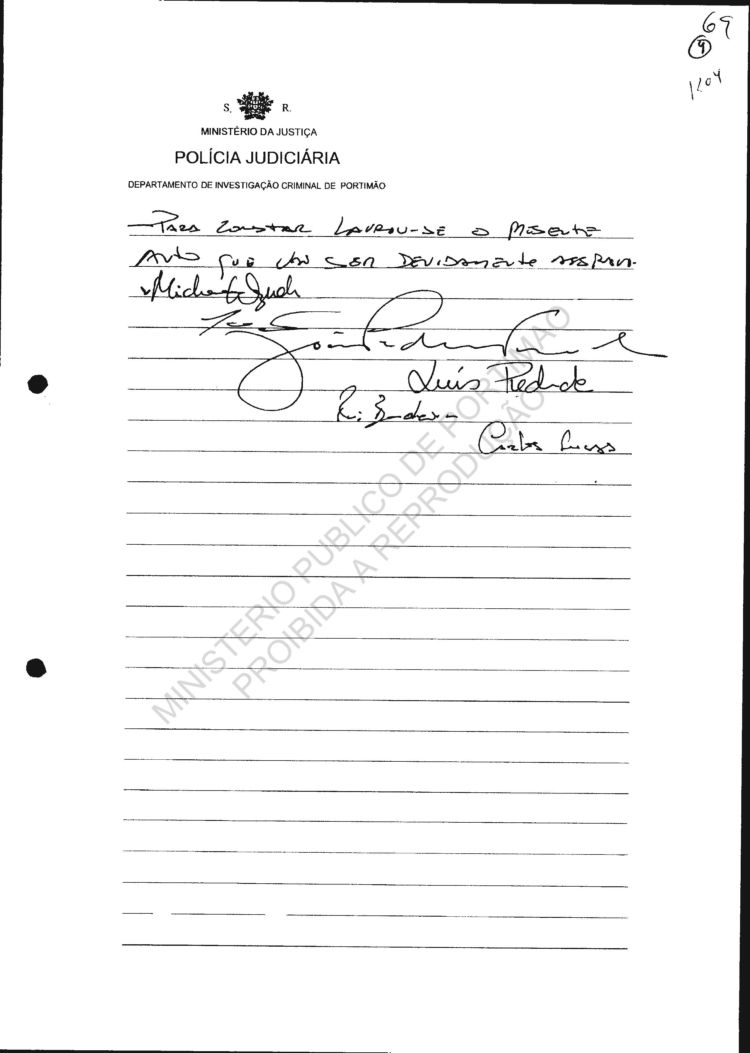 69
9
1204
S. R.
MINISTÉRIO DA JUSTIÇA
POLÍCIA JUDICIÁRIA
DEPARTAMENTO DE INVESTIGAÇÃO CRIMINAL DE PORTIMÃO
PARA CONSTAR LAVROU-SE O PRESENTE
AUTO QUE VAI SER DEVIDAMENTE
João Pedro
Luís
Rui
Carlos
MINISTERIO PUBLICO DE PORTIMAO
PROIBIDA A REPRODUÇÃO